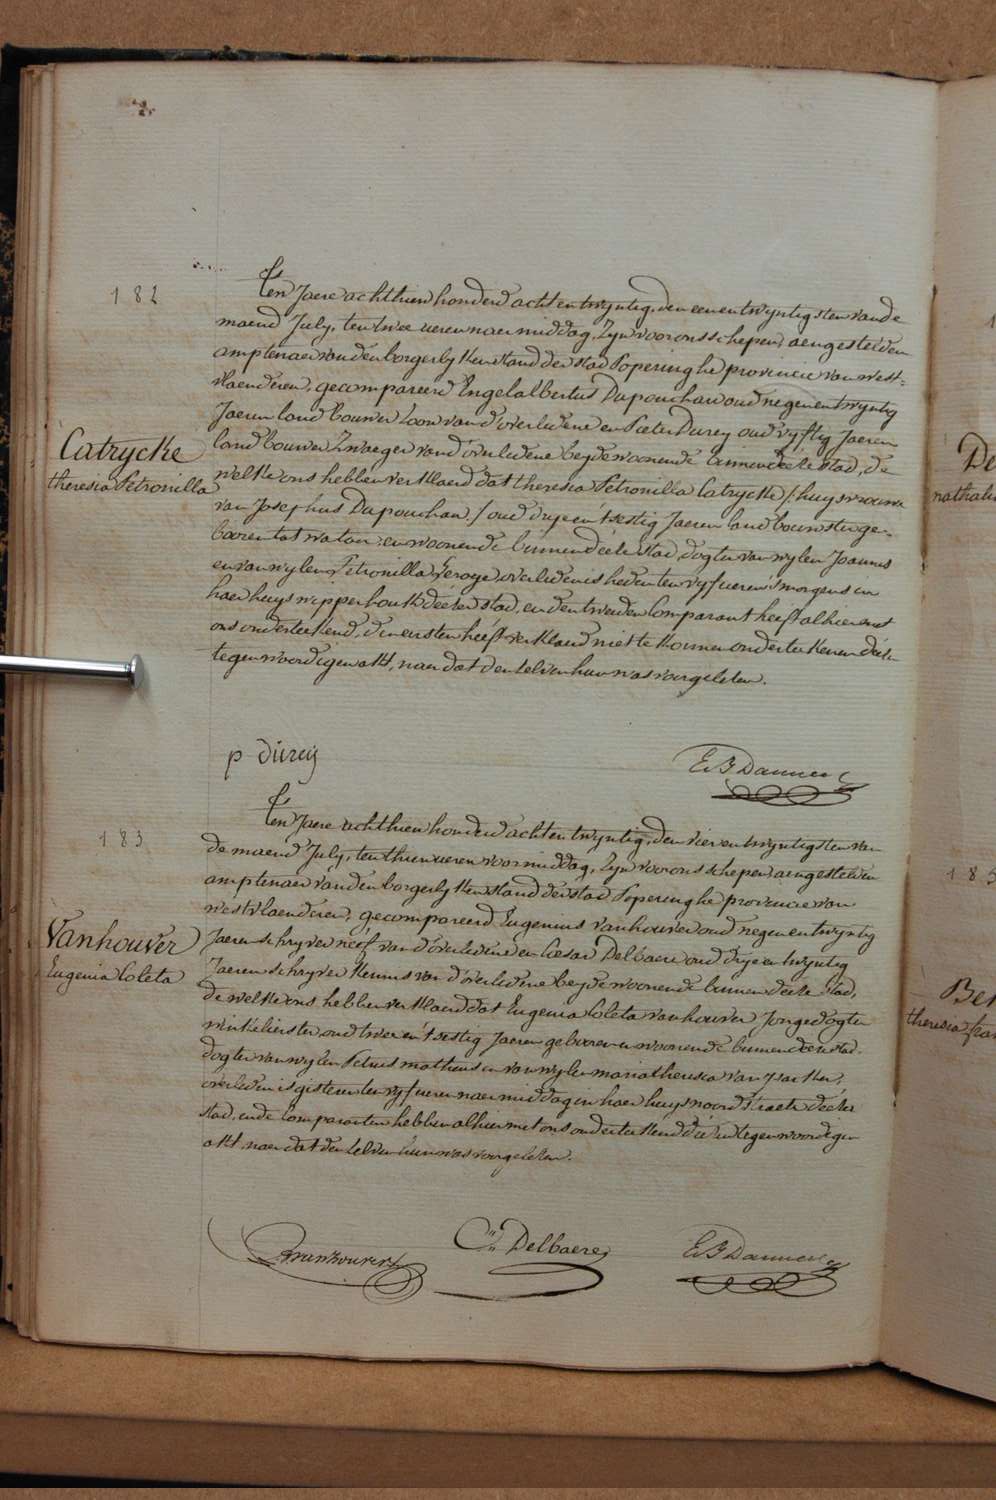 182
Ten Jaere achthien honderd achtentwyntig, den eenentwyntigsten van de
maend July, ten twee ueren naermiddag, Zyn voor ons schepen, aengestelden
amptenaer van den borgerlyken stand der stad Poperinghe provincie van west=
vlaenderen, gecompareerd Engelalbertus Dapouchan oud negenentwyntig
Jaeren land bouwer Zoon van d'overledene en Pieter Durey oud vyftig Jaeren
land bouwer Zwaeger van d'overledene beyde woonende binnen deeze stad, de
Catrycke
theresia Petronilla
welke ons hebben verklaerd dat theresia Petronilla Catrycke /: huysvrouwe
van Josephus Dapouchan :/ oud drye en t'sestig Jaeren land bouwstege-
booren tot watou, en woonende binnen deeze stad, dogter van wylen Joannes
en van wylen Petronilla Beroye, overleden is heden ten vyf ueren s'morgens in
haer huys wipperhouk deézer stad, en den tweeden Comparant heeft alhier met
ons onderteekend, den eersten heéft verklaerd niet te konnen onderteekenen déézen
tegenwoordigen akt, naer dat den zelven hun was voorgelezen.
p durey
E B Dannee
183
Ten Jaere achthien honderd achtentwyntig, den vierentwyntigsten van
de maend July, ten thien ueren voormiddag, Zyn voor ons schepen, aengestelden
amptenaer van den borgerlyken stand der stad Poperinghe provincie van
westvlaenderen, gecompareerd Eugenius vanhouver oud negenentwyntig
Vanhouver
Eugenia Coleta
Jaeren schryver neéf van d'overledene en Cesar Delbaere oud drye en twyntig
Jaeren schryver kennis van d'overledene beyde woonende binnen deeze stad,
de welke ons hebben verklaerd dat Eugenia Coleta vanhouver Jongedogter
winkelierster, oud twee en t'sestig Jaeren gebooren en woonende binnen deeze stad,
dogter van wylen Petrus matheus en van wylen maria theresia van Isacker,
overleden is gisteren ten vyf ueren naermiddag in haer huys noord straete deézer
stad, en de Comparanten hebben alhier met ons onderteekend dézen tegenwoordigen
akt, naer dat den zelven hun was voorgelezen.
E vanhouver
C.r Delbaere
E B Dannee
De
nathalie
185
Ber
theresia fran